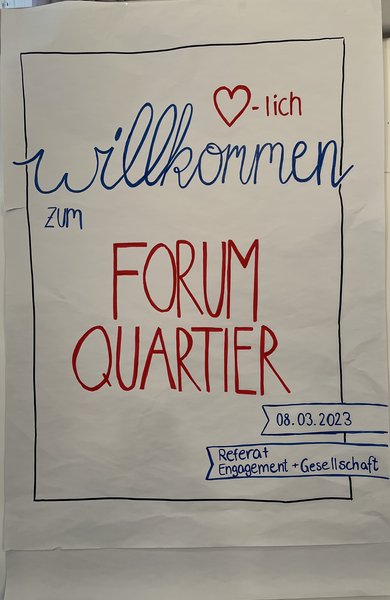 ♡-lich
willkommen
zum
FORUM
QUARTIER
08.03.2023
Referat
Engagement + Gesellschaft